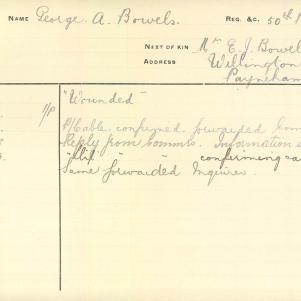 NAME George. A. Bowels. REG. &C. 50th
NEXT OF KIN Mr E. J. Bowel
ADDRESS Willington
Payneham
"Wounded"
1/P P/Cable. confirmed forwarded Com
Reply from Commts. Information
" " confirming
Same forwarded Inquirer.